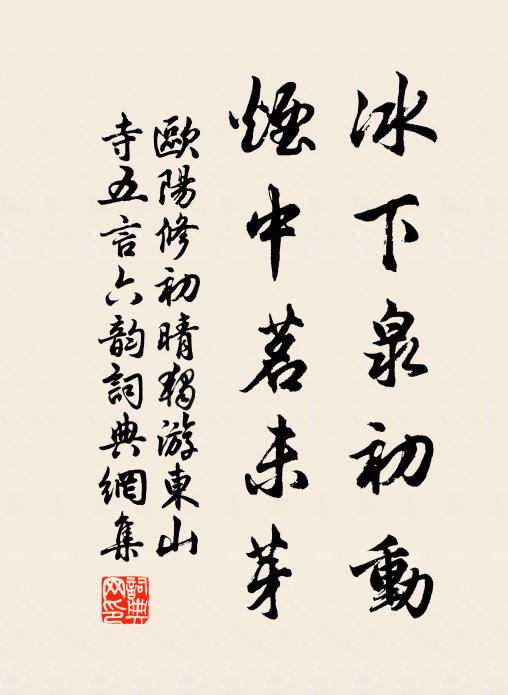 冰下泉初動
煙中茗未芽
歐陽修初晴獨游東山
寺五言六韵詞典網集
詞典網印